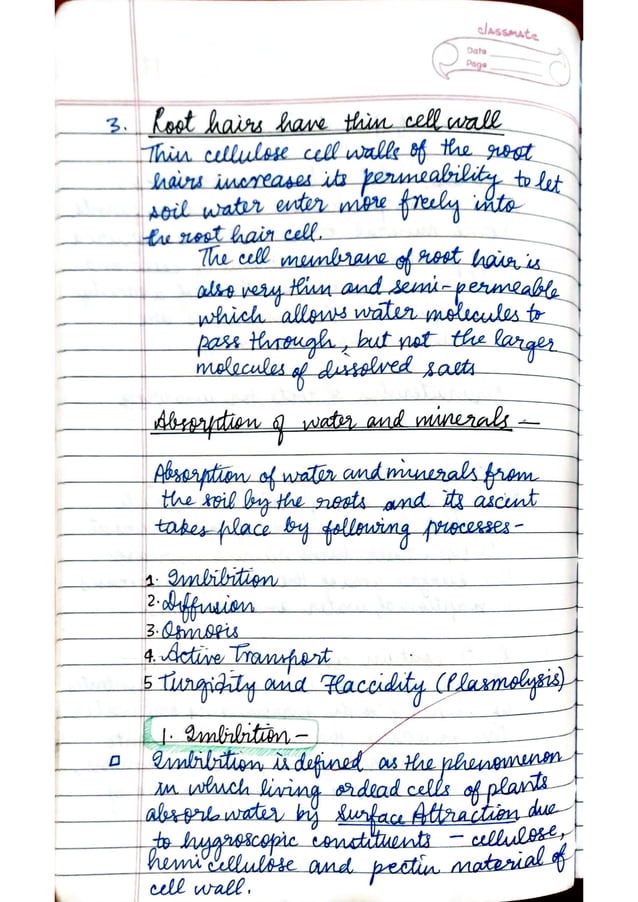 classmate
Date
Page
3. Root hairs have thin cell wall
Thin cellulose cell walls of the root
hairs increases its permeability to let
soil water enter more freely into
the root hair cell.
The cell membrane of root hair is
also very thin and semi-permeable
which allows water molecules to
pass through, but not the larger
molecules of dissolved salts
Absorption of water and minerals -
Absorption of water and minerals from
the soil by the roots and its ascent
takes place by following processes-
1. Imbibition
2. Diffusion
3. Osmosis
4. Active Transport
5 Turgidity and Flaccidity (Plasmolysis)
1. Imbibition -
Imbibition is defined as the phenomenon
in which living or dead cells of plants
absorb water by Surface Attraction due
to hygroscopic constituents - cellulose,
hemicellulose and pectin material of
cell wall.